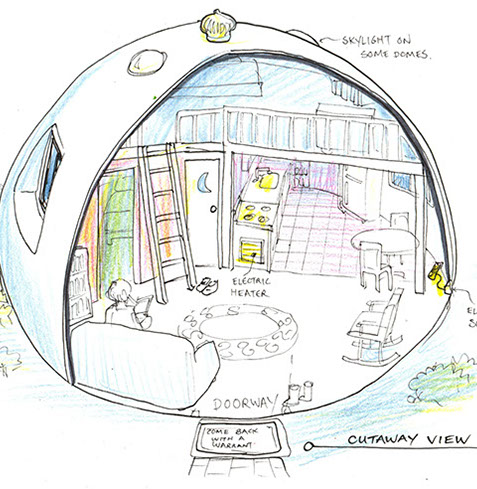 SKYLIGHT ON
SOME DOMES.
ELECTRIC
HEATER
EL
S
DOORWAY
COME BACK
WITH A
WARRANT
CUTAWAY VIEW